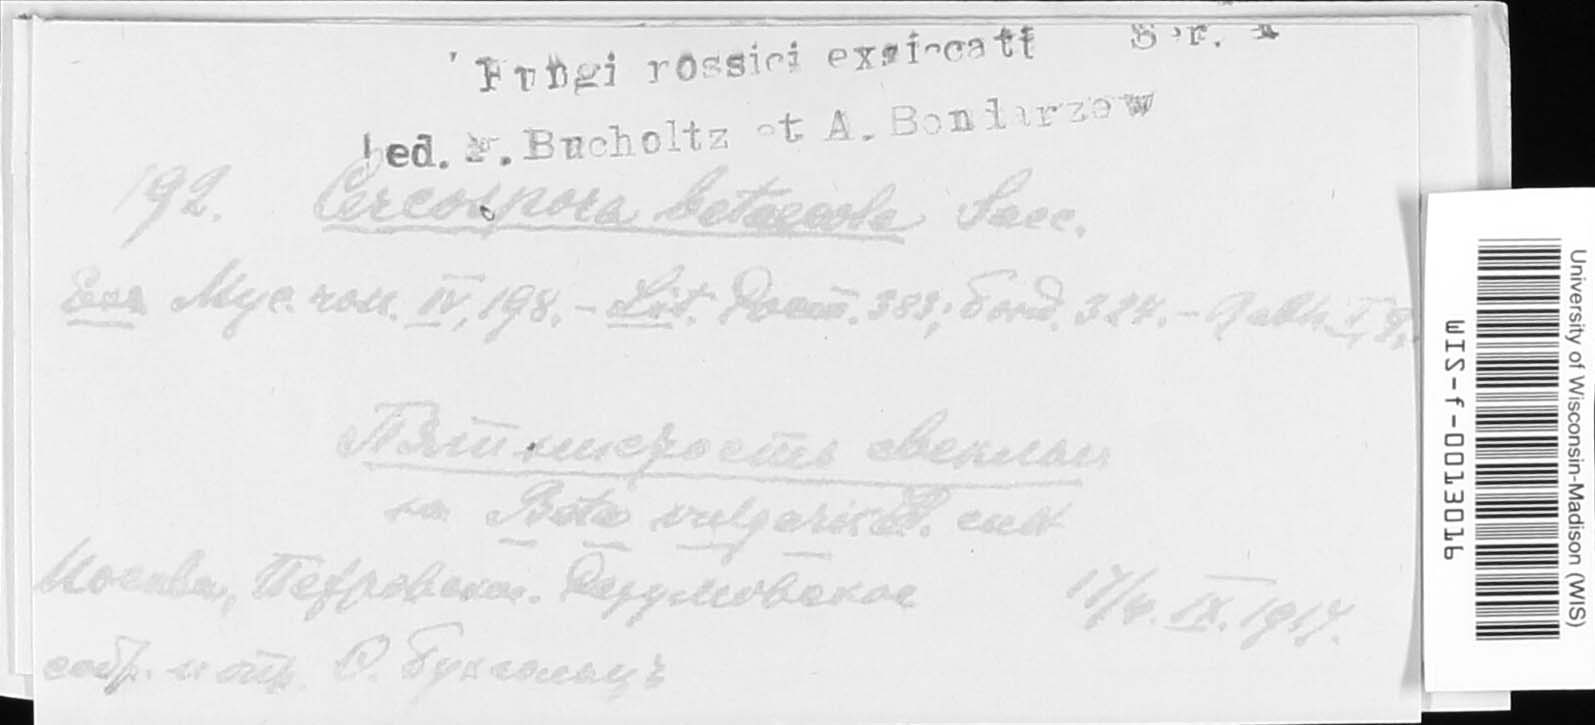 Fungi rossici exsiccati Ser.
ed. F. Bucholtz et A. Bondarzew
192. Cercospora beticola Sacc.
Exs. Myc. ross. IV, 198. – Lit. 383; Бонд. 324. –
свеклы
на Beta vulgaris L. cult
Москва, Петровское.
17/4. IX. 1917.
собр. и опр. Ѳ. Бухгольцъ
University of Wisconsin-Madison (WIS)
WIS-f-0013016